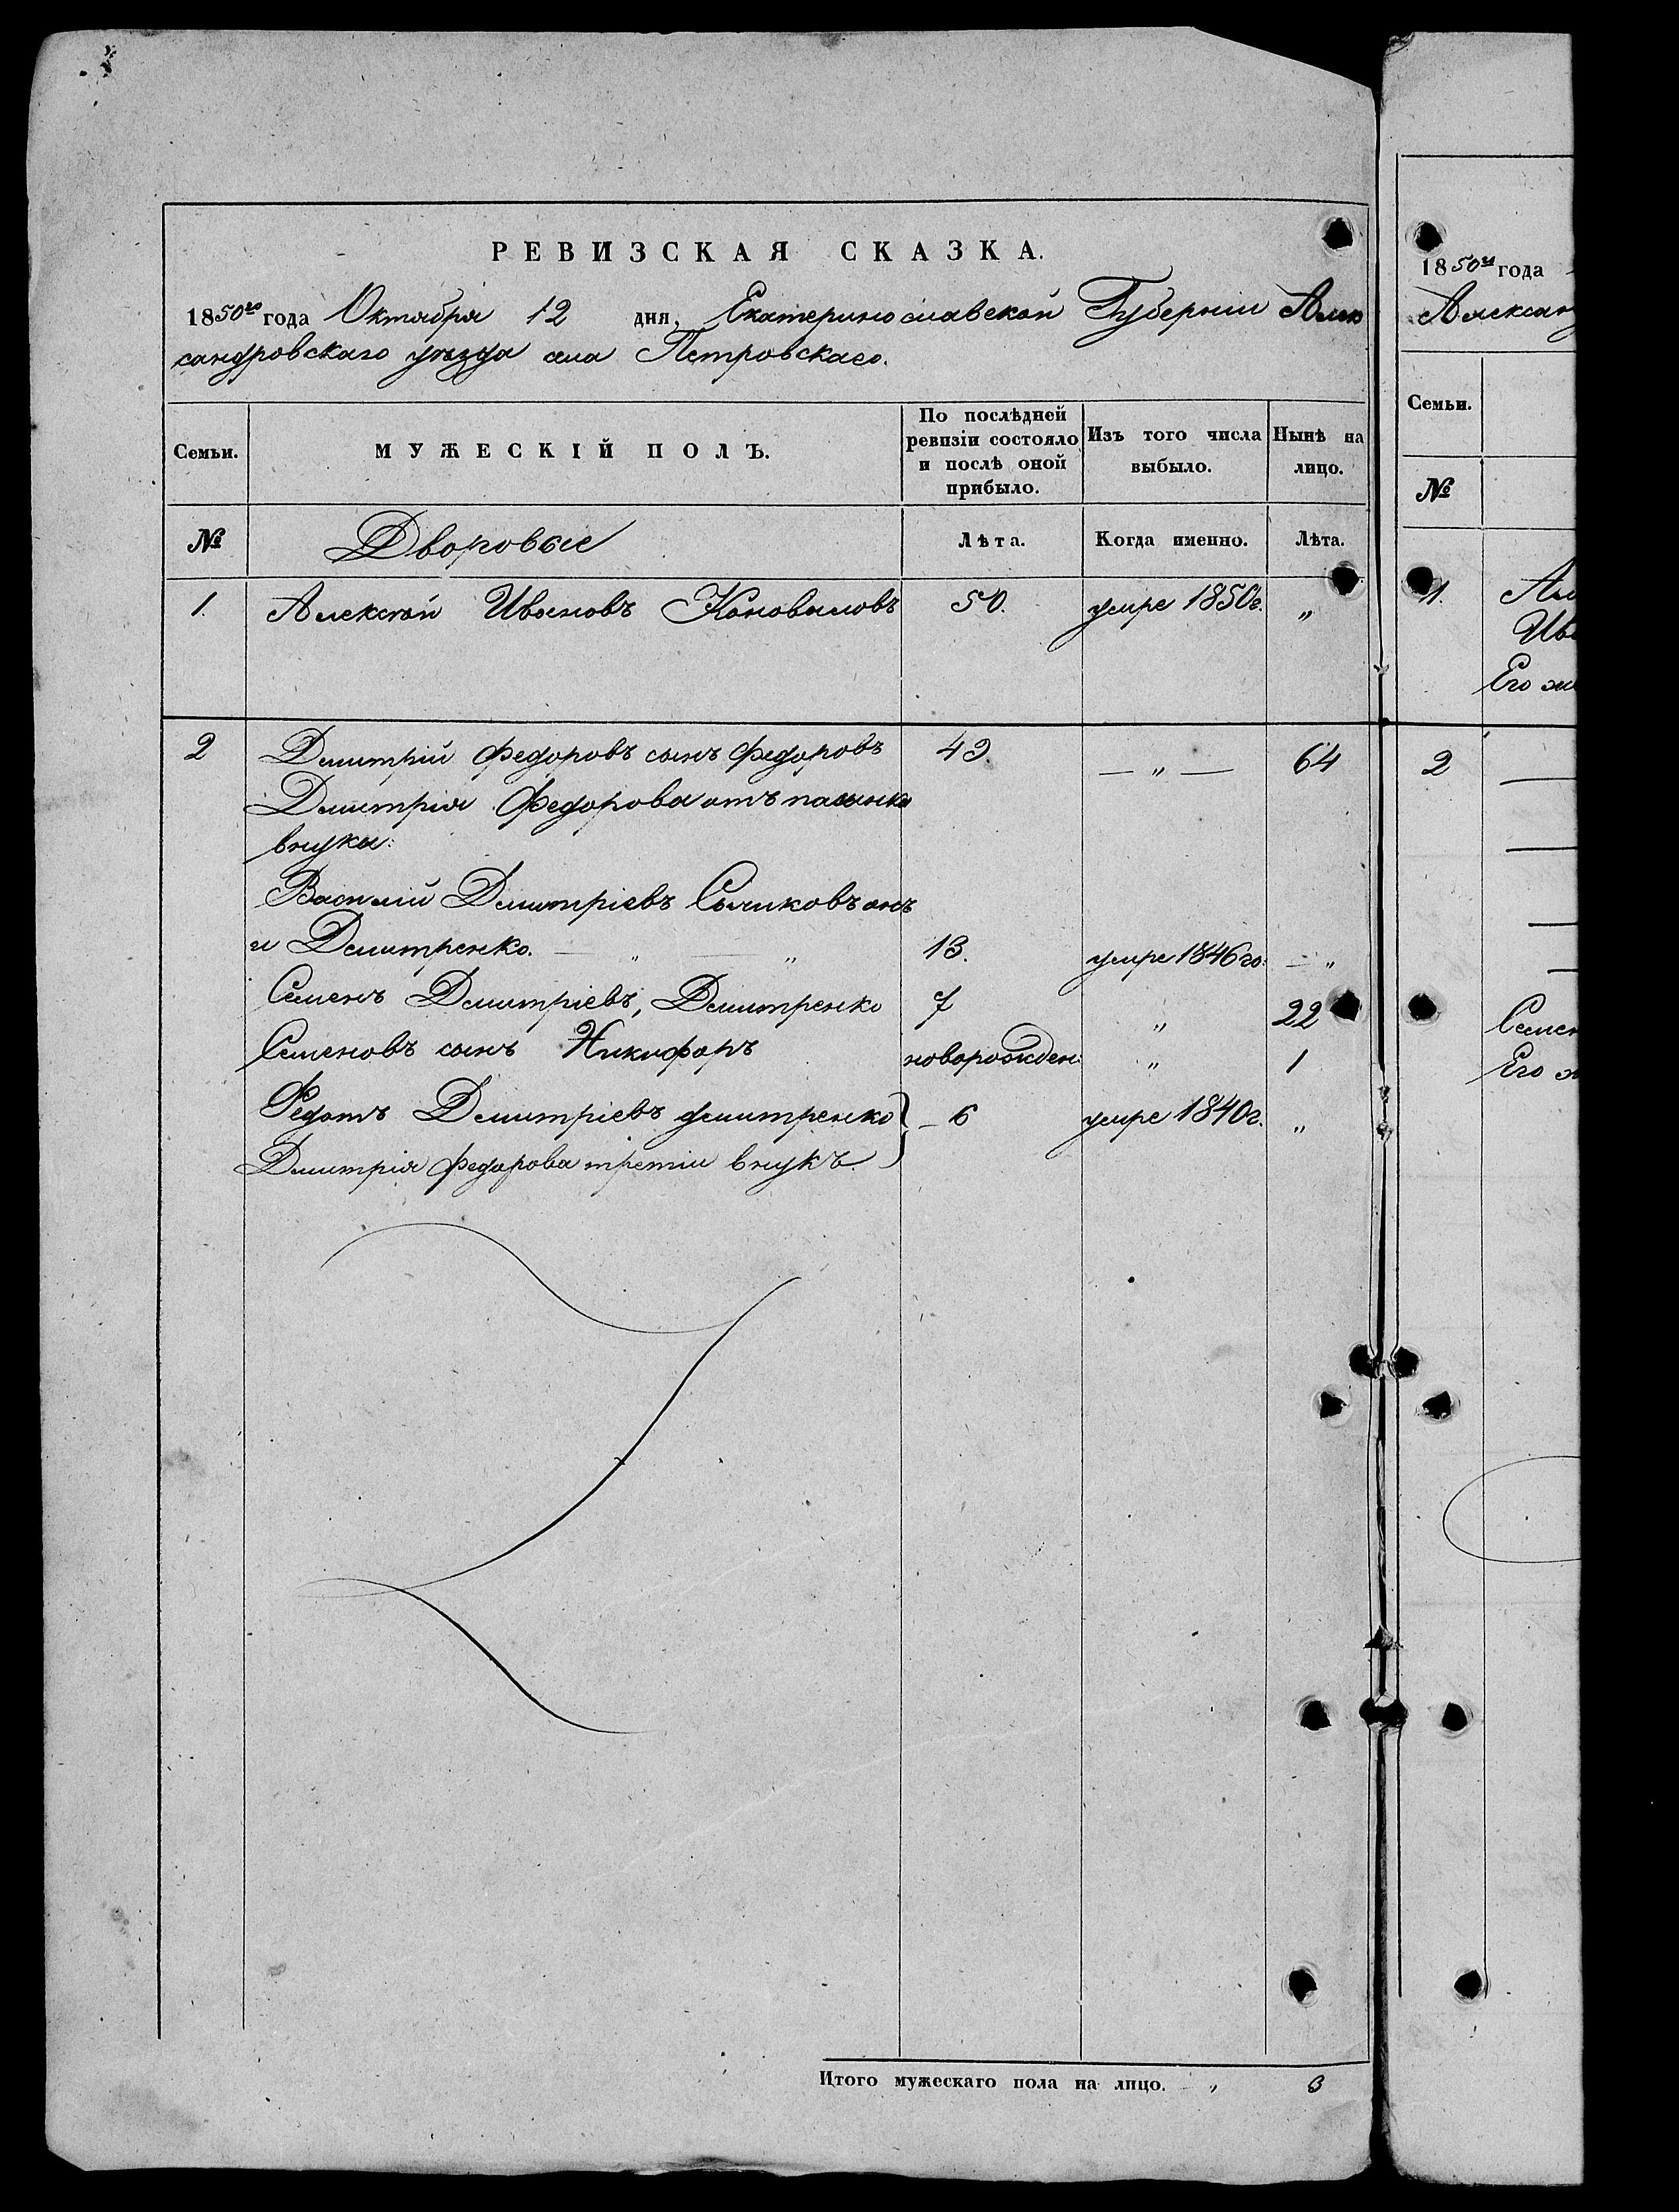 РЕВИЗСКАЯ СКАЗКА.
1850го года Октября 12 дня, Екатеринославской Губерніи Алек
сандровскаго уѣзда села Петровскаго.
Семьи.
МУЖЕСКІЙ ПОЛЪ.
По послѣдней ревизіи состояло и послѣ оной прибыло.
Изъ того числа выбыло.
Нынѣ на лицо.
№
Дворовые
Лѣта.
Когда именно.
Лѣта.
1. Алексѣй Ивановъ Коноваловъ 50. умре 1850г. „
2 Дмитрій Федоровъ сынъ Федоровъ 49. — „ — 64
Дмитрія Федорова отъ пасынка
внуки:
Василій Дмитріевъ онъ
и Дмитренко. — „ — „ 13. умре 1846го: — „
Семенъ Дмитріевъ, Дмитренко 7 „ 22
Семеновъ сынъ Никифоръ новорожден: „ 1
Федотъ Дмитріевъ дмитренко — 6 умре 1840г. „
Дмитрія федорова третіи внукъ.
Итого мужескаго пола на лицо. „ 3
1850го года
Александ
Семьи.
№
1. Ал
Ив
Его ж
2
Семен
Его ж